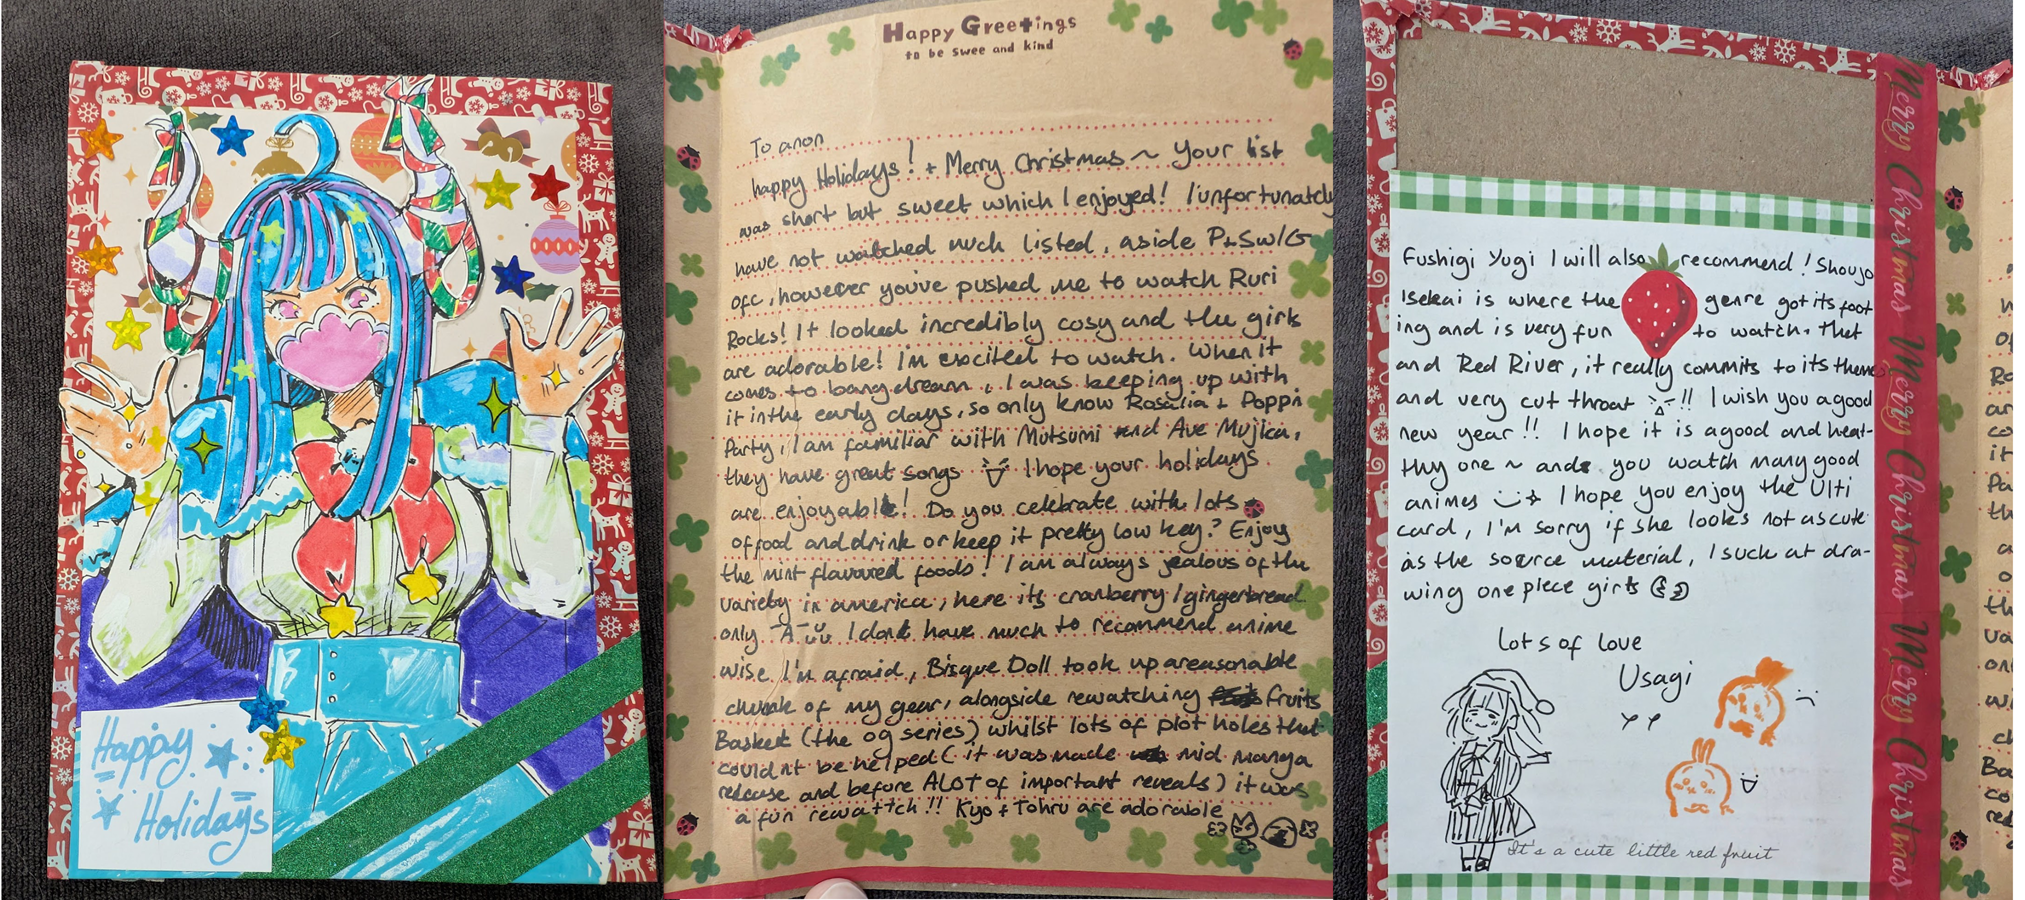 Happy
Holidays
Happy Greetings
to be swee and kind
To anon
happy Holidays! + Merry Christmas ~ Your list
was short but sweet which I enjoyed! I unfortunately
have not watched much listed, aside P+Sw/G
ofc, however you've pushed me to watch Ruri
Rocks! It looked incredibly cosy and the girls
are adorable! I'm excited to watch. When it
comes to bang dream, I was keeping up with
it in the early days, so only know Rosalia + Poppin
Party, I am familiar with Mutsumi and Ave Mujica,
they have great songs I hope your holidays
are enjoyable! Do you celebrate with lots
of food and drink or keep it pretty low key? Enjoy
the mint flavoured foods! I am always jealous of the
variety in america, here its cranberry/gingerbread
only I dont have much to recommend anime
wise I'm afraid, Bisque Doll took up a reasonable
chunk of my year, alongside rewatching fruits
Basket (the og series) whilst lots of plot holes that
couldnt be helped (it was made mid manga
release and before ALOT of important reveals) it was
a fun rewattch!! Kyo + Tohru are adorable
Fushigi Yugi I will also recommend! Shoujo
Isekai is where the genre got its foot
ing and is very fun to watch. That
and Red River, it really commits to its themes
and very cut throat !! I wish you a good
new year!! I hope it is a good and heal-
thy one ~ and you watch many good
animes I hope you enjoy the Ulti
card, I'm sorry if she looks not as cute
as the source material, I suck at dra-
wing one piece girls
lots of love
Usagi
It's a cute little red fruit
Merry Christmas Merry Christmas Merry Christmas